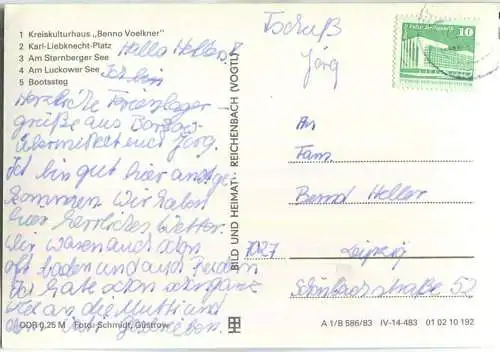 1 Kreiskulturhaus „Benno Voelkner"
2 Karl-Liebknecht-Platz
3 Am Sternberger See
4 Am Luckower See
5 Bootssteg
Hallo
Herzliche Ferienlager-
grüße aus
übermittelt euch Jörg.
Ich bin gut hier ange
kommen. Wir haben
hier herrliches Wetter.
Wir waren auch schon
oft baden und auch
Ich habe schon
an die Mutti und
Tschüß
Jörg
10
An
Fam.
Bernd Heller
7027 Leipzig
Schönbachstraße 52
BILD UND HEIMAT REICHENBACH (VOGTL)
DDR 0,25 M Foto: Schmidt, Güstrow
A 1/B 586/83 IV-14-483 01 02 10 192